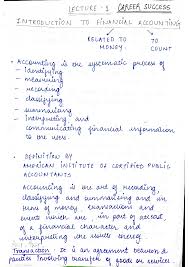 LECTURE - 1 CAREER SUCCESS
INTRODUCTION TO FINANCIAL ACCOUNTING
RELATED TO MONEY
TO COUNT
• Accounting is the systematic process of
- Identifying
- measuring
- recording
- classifying
- summarising
- Interpreting and
- communicating financial information
to the users.
• DEFINITION BY
AMERICAN INSTITUTE OF CERTIFIED PUBLIC
ACCOUNTANTS
Accounting is the art of recording,
classifying and summarising and in
terms of money transactions and
events which are, in part at least,
of a financial character, and
interpreting the results
Transaction : It is an agreement between 2
parties involving transfer of goods or services